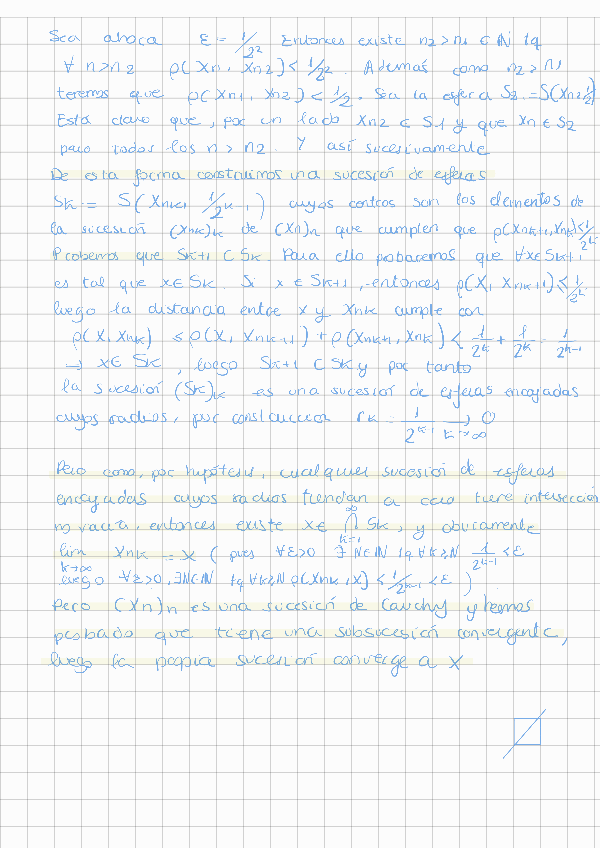 Sea ahora ε = 1/2² Entonces existe n₂ > n₁ ∈ ℕ tq
∀ n > n₂ ρ(Xn, Xn₂) < 1/2². Además como n₂ > n₁
tenemos que ρ(Xn₁, Xn₂) < 1/2. Sea la esfera S₂ = S(Xn₂, 1/2)
Está claro que, por un lado Xn₂ ∈ S₁ y que Xn ∈ S₂
para todos los n > n₂. Y así sucesivamente
De esta forma construimos una sucesión de esferas
Sk := S(Xnk, 1/2^(k-1)) cuyos centros son los elementos de
la sucesión (Xnk)k de (Xn)n que cumplen que ρ(Xnk+1, Xnk) < 1/2^k
Probemos que Sk+1 ⊂ Sk. Para ello probaremos que ∀x ∈ Sk+1
es tal que x ∈ Sk. Si x ∈ Sk+1, entonces ρ(X, Xnk+1) ≤ 1/2^k
luego la distancia entre x y Xnk cumple con
ρ(X, Xnk) ≤ ρ(X, Xnk+1) + ρ(Xnk+1, Xnk) < 1/2^k + 1/2^k = 1/2^(k-1)
→ x ∈ Sk, luego Sk+1 ⊂ Sk y por tanto
la sucesión (Sk)k es una sucesión de esferas encajadas
cuyos radios, por construcción rk = 1/2^(k-1) → 0 k→∞
Pero como, por hipótesis, cualquier sucesión de esferas
encajadas cuyos radios tiendan a cero tiene intersección
no vacía, entonces existe x ∈ ⋂_{k=1}^∞ Sk, y obviamente
lim_{k→∞} Xnk = X ( pues ∀ε>0 ∃ N∈ℕ tq ∀k≥N 1/2^(k-1) < ε
luego ∀ε>0, ∃N∈ℕ tq ∀k≥N ρ(Xnk, X) < 1/2^(k-1) < ε )
Pero (Xn)n es una sucesión de Cauchy y hemos
probado que tiene una subsucesión convergente,
luego la propia sucesión converge a X